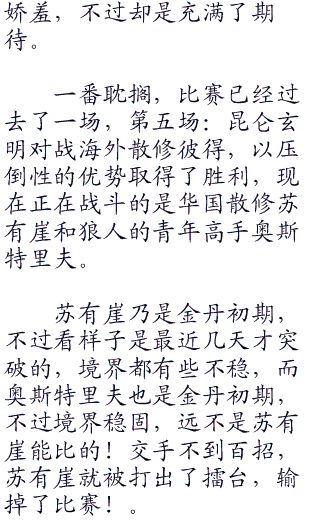 娇羞，不过却是充满了期
待。
一番耽搁，比赛已经过
去了一场，第五场：昆仑玄
明对战海外散修彼得，以压
倒性的优势取得了胜利，现
在正在战斗的是华国散修苏
有崖和狼人的青年高手奥斯
特里夫。
苏有崖乃是金丹初期，
不过看样子是最近几天才突
破的，境界都有些不稳，而
奥斯特里夫也是金丹初期，
不过境界稳固，远不是苏有
崖能比的！交手不到百招，
苏有崖就被打出了擂台，输
掉了比赛！。